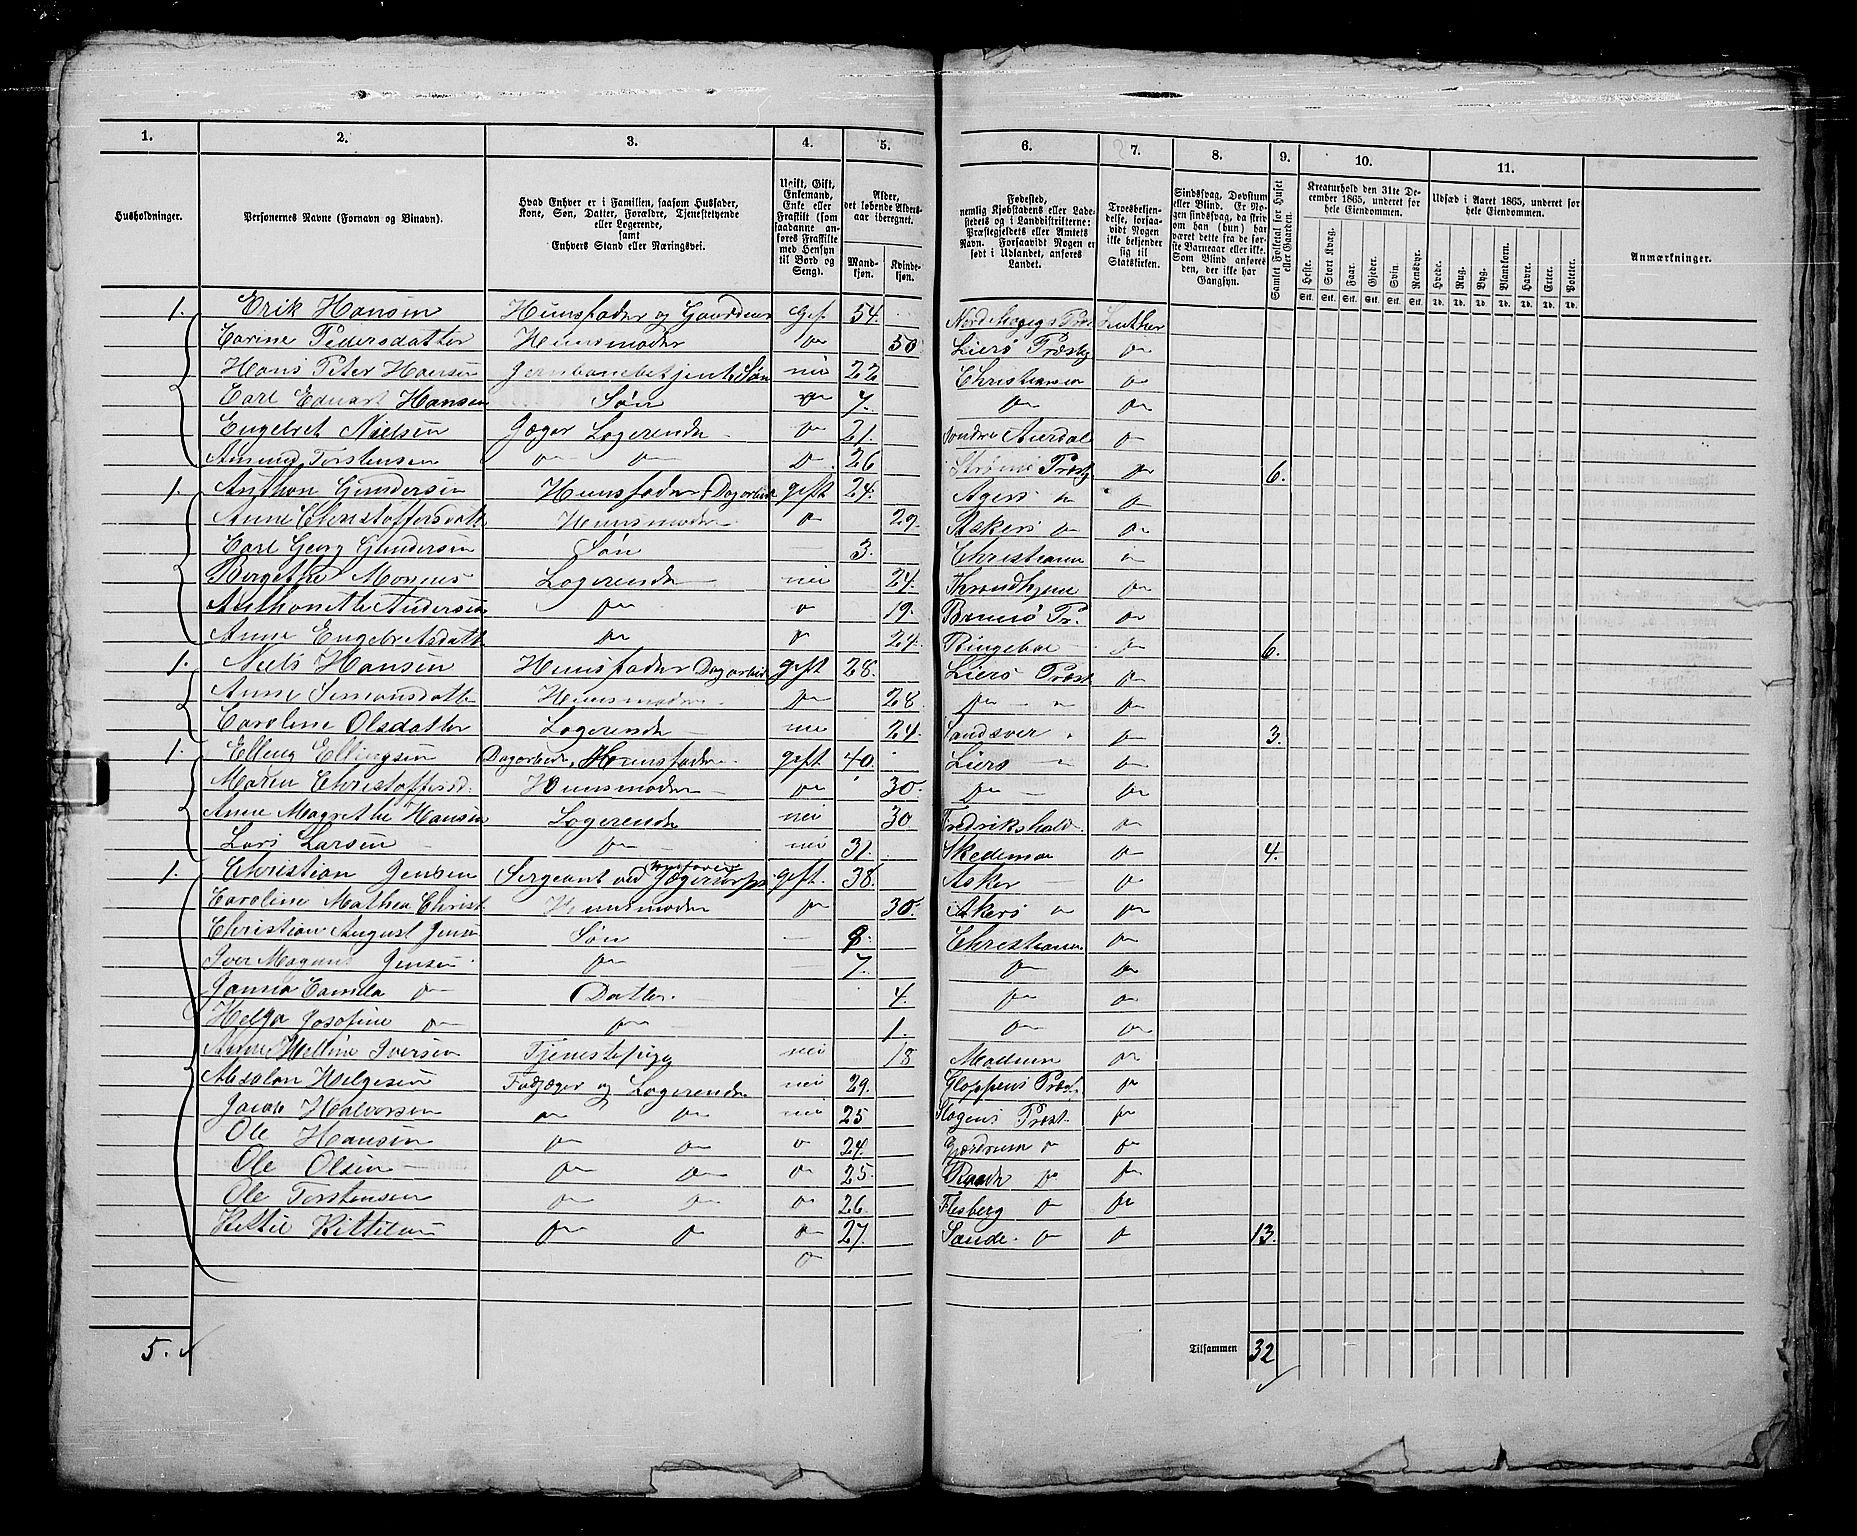 1. 2. 3. 4. 5. 6. 7. 8. 9. 10. 11.
Husholdninger.
Personernes Navne (Fornavn og Binavn).
Hvad Enhver er i Familien, saasom Husfader, Kone, Søn, Datter, Forældre, Tjenestetyende eller Logerende, samt Enhvers Stand eller Næringsvei.
Ugift, Gift, Enkemand, Enke eller Fraskilt (som saadanne anføres Fraskilte med Hensyn til Bord og Seng).
Alder, det løbende Aldersaar iberegnet.
Mandkjøn. Kvindekjøn.
Fødested, nemlig Kjøbstadens eller Ladestedets og i Landdistrikterne: Præstegjeldets eller Amtets Navn. Forsaavidt Nogen er født i Udlandet, anføres Landet.
Troesbekjendelse, forsaavidt Nogen ikke bekjender sig til Statskirken.
Sindssvag, Døvstum eller Blind. Er Nogen sindssvag, da skrives om han (hun) har været dette fra de første Barneaar eller ikke. Som Blind anføres den, der ikke har Gangsyn.
Samlet Folketal for Huset eller Gaarden.
Kreaturhold den 31te December 1865, underet for hele Eiendommen.
Heste. Stort Kvæg. Faar. Gjeder. Svin. Rensdyr.
Udsæd i Aaret 1865, underet for hele Eiendommen.
Hvede. Rug. Byg. Blandkorn. Havre. Erter. Poteter.
Anmærkninger.
Stk. Stk. Stk. Stk. Stk. Stk. Td. Td. Td. Td. Td. Td. Td.
1. Erik Hansen Huusfader og gift 54. Luther
Carine Pedersdatter Huusmoder do 50 Liers Præstg do
Hans Peter Hansen Jernbanebetjent Søn nei 22 Christiania do
Carl Eduart Hansen Søn do 7. do do
Engebret Nielsen Jæger Logerende do 21. Søndre Aurdal do
Amund Torstensen do do do 26 Præstg do 6.
1. Anthon Gundersen Huusfader Dagarbeid gift 24. Agers do do
Anne Christoffersdatt Huusmoder do 29. Askers do do
Carl Georg Gundersen Søn 3. Christiania do
Bergethe Monnes Logerende nei 24. Throndhjem do
Anthonette Andersen do do 19. Pr. do
Anne Engebretsdatt do do 24. Ringeboe do 6.
1. Niels Hansen Huusfader Dagarbeid gift 28. Liers Præst do
Anne Simonsdatter Huusmoder do 28. do do do
Caroline Olsdatter Logerende nei 24. Sandsver do 3.
1. Elling Ellingsen Dagarbeid, Huusfader gift 40. Liers do do
Maren Christoffersd. Huusmoder do 30. do do
Anne Magrethe Hansen Logerende nei 30 Fredrikshald do
Lars Larsen do nei 31. Skedsmoe do 4.
1. Christian Jensen Sergeant ved Jægercorps gift. 38. Asker do
Caroline Mathea Christ. Huusmoder do 30. Akers do do
Christian August Jens Søn 8. Christiania do
Iver Magnus Jensen do 7. do do
Camilla do Datter 4. do do
Helga Josefine do do 1. do do
Anne Melline Iversen Tjenestepige nei 18 Modum do
Absalon Helgesen Jæger og Logerende nei 29. Gloppens Præst. do
Jacob Halvorsen do do nei 25 Slagens Præst. do
Ole Hansen do do do 24. Gjerdrum do do
Ole Olsen do do do 25. Raade do do
Ole Torstensen do do do 26 Flesberg do do
Kittil Kittilsen do do do 27. Sande. do do 13.
do
5. Tilsammen 32